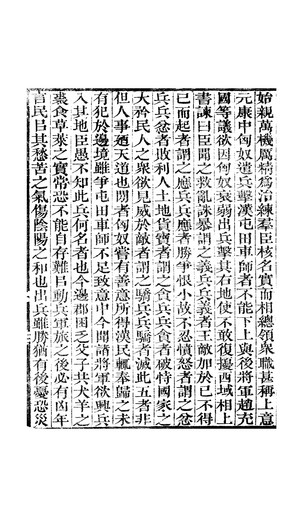 始親萬機厲精爲治練羣臣核名實而相總領衆職甚稱上意
元康中匈奴遣兵擊漢屯田車師者不能下上與後將軍趙充
國等議欲因匈奴衰弱出兵擊其右地使不敢復擾西域相上
書諫曰臣聞之救亂誅暴謂之義兵兵義者王敵加於己不得
已而起者謂之應兵兵應者勝爭恨小故不忍憤怒者謂之忿
兵兵忿者敗利人土地貨寶者謂之貪兵兵貪者破恃國家之
大矜民人之衆欲見威於敵者謂之驕兵兵驕者滅此五者非
但人事廼天道也間者匈奴嘗有善意所得漢民輒奉歸之未
有犯於邊境雖爭屯田車師不足致意中今聞諸將軍欲興兵
入其地臣愚不知此兵何名者也今邊郡困乏父子共犬羊之
裘食草萊之實常恐不能自存難㠯動兵軍旅之後必有凶年
言民㠯其愁苦之氣傷陰陽之和也出兵雖勝猶有後憂恐災